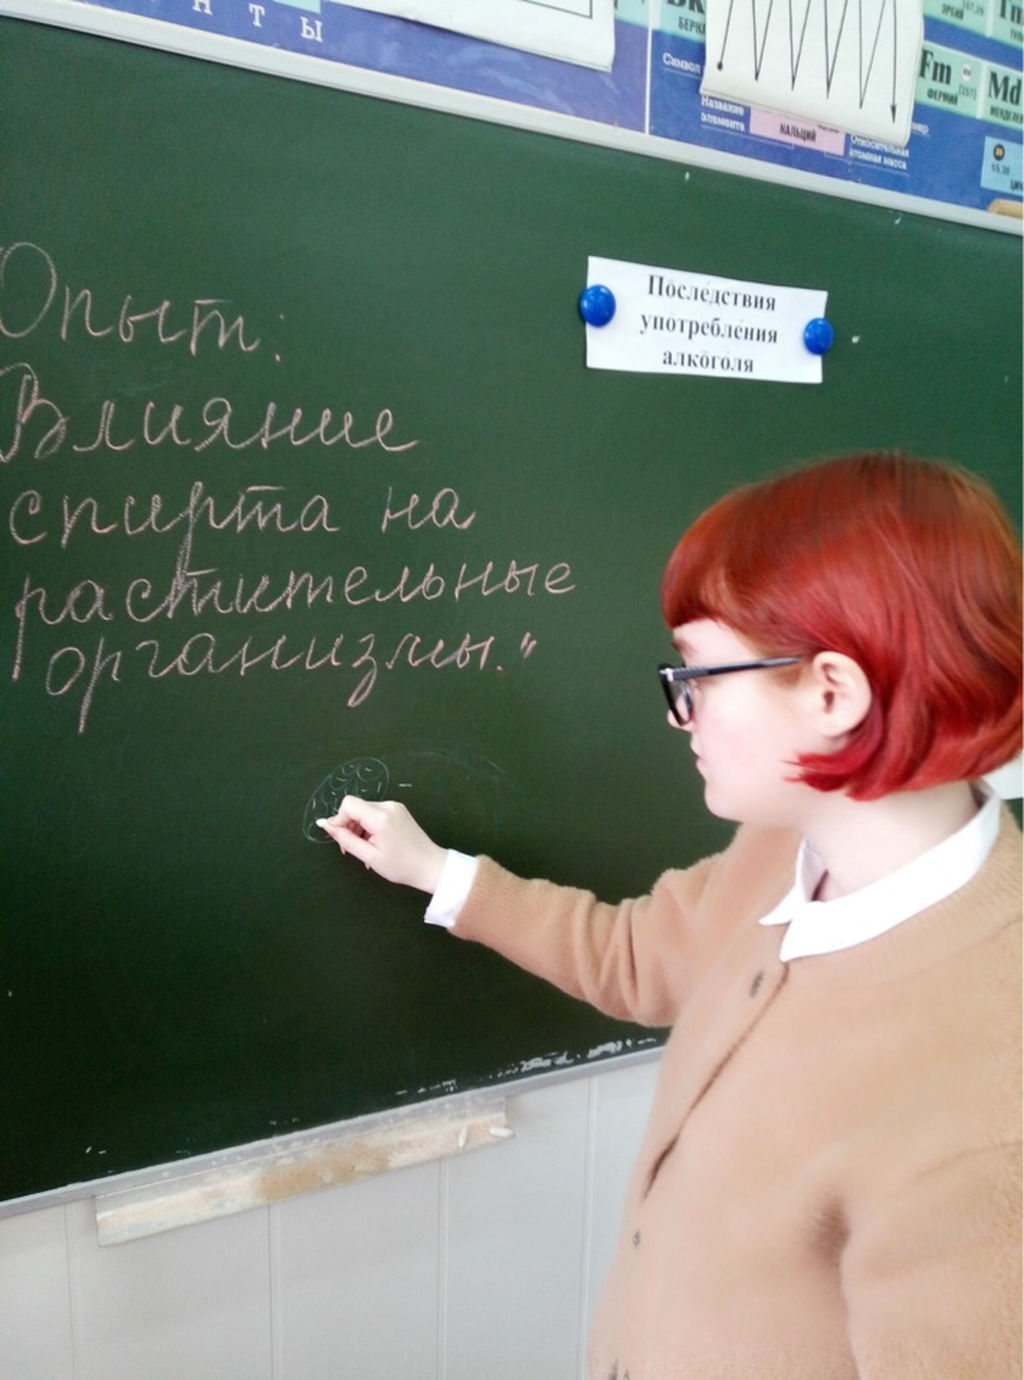 НТЫ
БЕРК
ЭРБИЙ
Символ
Fm
ФЕРМИЙ
[257]
Md
Название
элемента
КАЛЬЦИЙ
Относительная
атомная масса
Опыт:
Влияние
спирта на
растительные
организмы."
Последствия
употребления
алкоголя